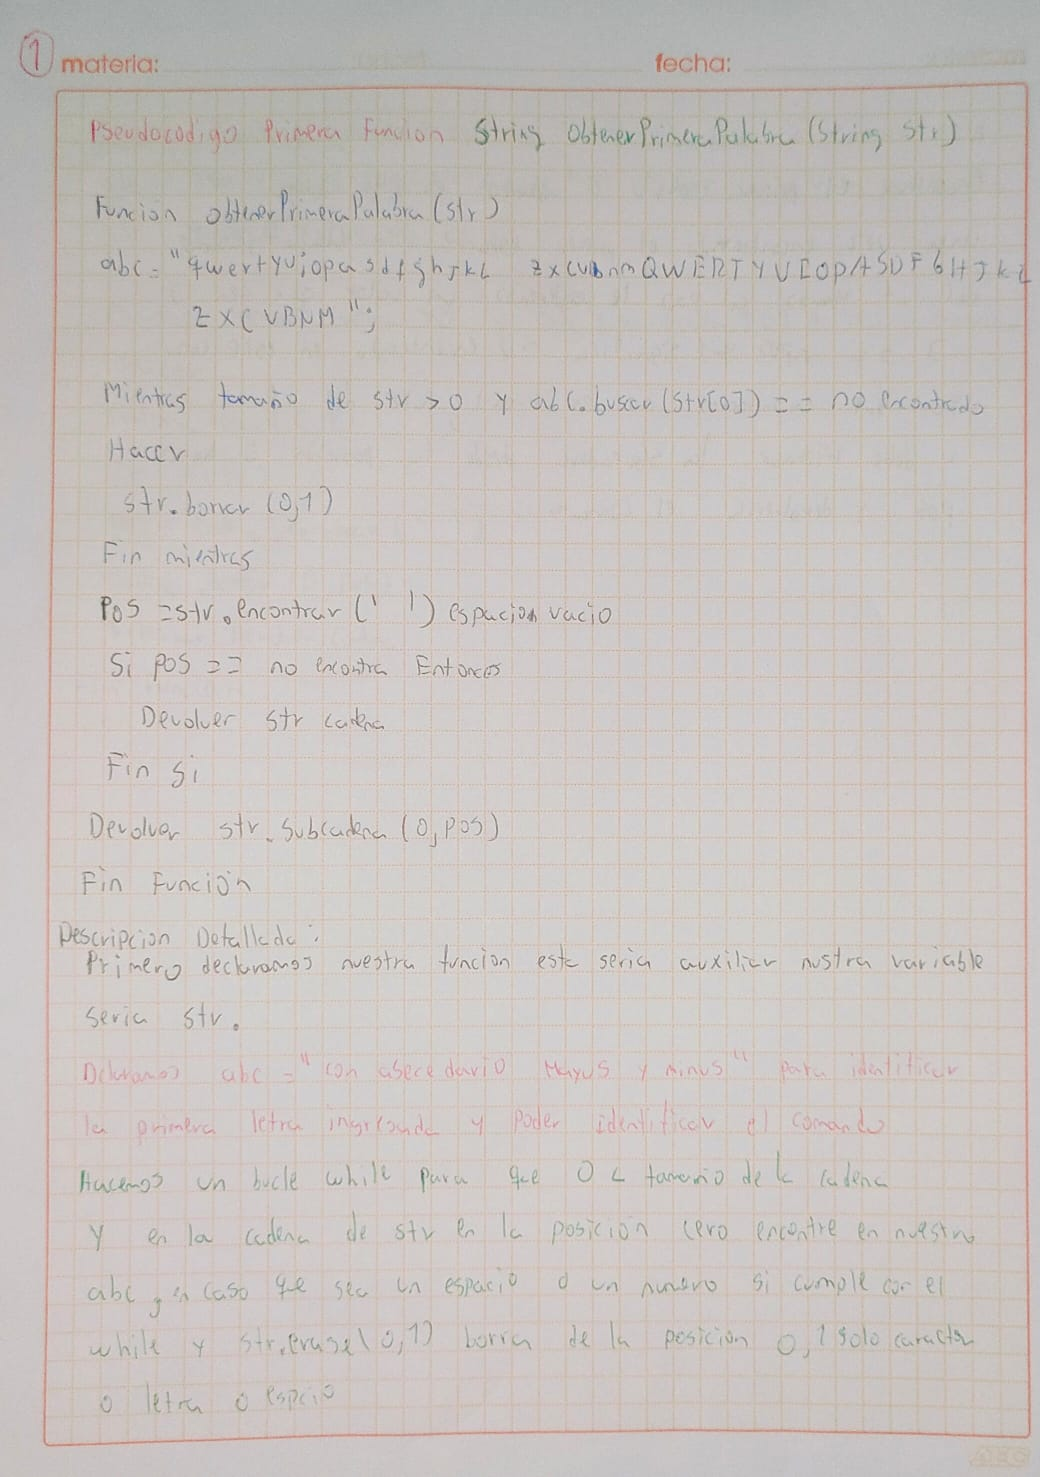 1 materia: fecha:
Pseudocodigo Primera Funcion String ObtenerPrimeraPalabra (String str)
Funcion obtenerPrimeraPalabra (str)
abc = "qwertyuiopasdfghjkl zxcvbnmQWERTYUIOPASDFGHJKL
ZXCVBNM";
Mientras tamaño de str > 0 y abc.buscar (str[0]) == no encontrado
Hacer
str.borrar (0,1)
Fin mientras
Pos = str.encontrar (' ') espacion vacio
Si pos == no encontra Entonces
Devolver str cadena
Fin si
Devolver str.subcadena (0, pos)
Fin Función
Descripcion Detallada:
Primero declaramos nuestra funcion esta seria auxiliar nustra variable
seria str.
Dclaramos abc = "con abecedario Mayus y minus" para identificar
la primera letra ingresada y poder identificar el comando
Hacemos un bucle while para que 0 < tamaño de la cadena
y en la cadena de str en la posición cero encontre en nuestro
abc, en caso que sea un espacio o un numero si cumple con el
while y str.erase(0,1) borra de la posicion 0, 1 solo caracter
o letra o espcio